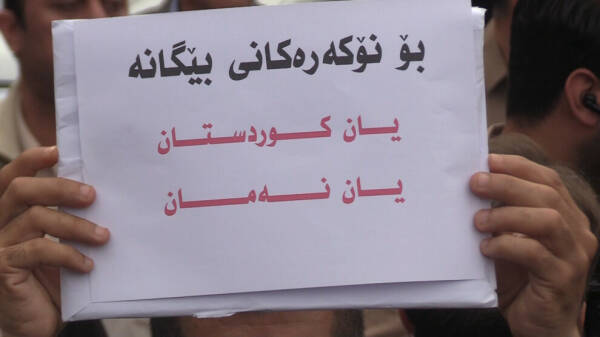 بۆ نۆکەرەکانی بێگانە
یان کوردستان
یان نەمان